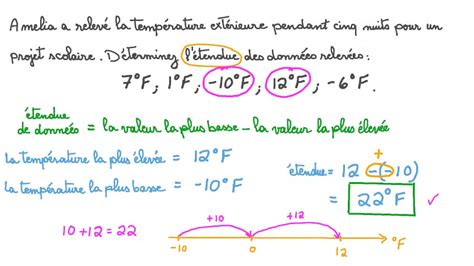 Amelia a relevé la température extérieure pendant cinq nuits pour un
projet scolaire. Déterminez l'étendue des données relevées :
7°F ; 1°F ; -10°F ; 12°F ; -6°F.
étendue de données = la valeur la plus basse - la valeur la plus élevée
la température la plus élevée = 12°F
la température la plus basse = -10°F
+
étendue = 12 -(-10)
= 22°F ✓
10 + 12 = 22
+10 +12
-10 0 12 °F